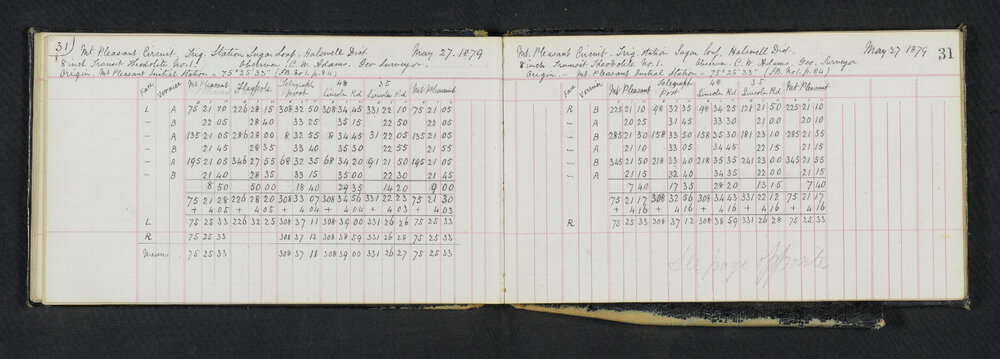 31)
Mt Pleasant Circuit, Trig. Station Sugar Loaf, Halswell Dist May 27. 1879
8 inch Transit Theodolite No. 1. Observer C. W. Adams. Geo Surveyor.
Origin, Mt Pleasant Initial Station = 75° 25' 33" (F.B. No 1. p. 84)
Face Vernier Mt Pleasant Flagpole Telegraph post 48 Lincoln Rd 35 Lincoln Rd Mt Pleasant
L A 75 21 10 226 28 15 308 32 50 308 34 45 331 22 10 75 21 05
" B 22 05 28 40 33 25 35 15 22 50 22 05
" A 135 21 05 286 28 00 8 32 55 8 34 45 31 22 05 135 21 05
" B 21 45 28 35 33 40 35 30 22 55 21 55
" A 195 21 05 346 27 55 68 32 35 68 34 20 91 21 50 195 21 05
" B 21 40 28 35 33 15 35 00 22 30 21 45
8 50 50 00 18 40 29 35 14 20 9 00
75 21 28 226 28 20 308 33 07 308 34 56 331 22 23 75 21 30
+ 4 05 + 4 05 + 4 04 + 4 04 + 4 03 + 4 03
L 75 25 33 226 32 25 308 37 11 308 39 00 331 26 26 75 25 33
R 75 25 33 308 37 12 308 38 59 331 26 28 75 25 33
Means 75 25 33 308 37 11 308 39 00 331 26 27 75 25 33
Mt. Pleasant Circuit. Trig Station Sugar Loaf, Halswell Dist. May 27 1879 31
8 inch Transit Theodolite No. 1. Observer. C. W. Adams, Geo. Surveyor
Origin. – Mt Pleasant Initial Station = 75° 25' 33" (F.B. No 1 p. 84)
Face Vernier Mt Pleasant Telegraph post 48 Lincoln Rd 35 Lincoln Rd Mt Pleasant
R B 225 21 10 98 32 35 98 34 25 121 21 50 225 21 10
" A 20 25 31 45 33 30 21 00 20 30
" B 285 21 50 158 33 50 158 35 30 181 23 10 285 21 55
" A 21 10 33 05 34 45 22 15 21 15
" B 345 21 50 218 33 40 218 35 35 241 23 00 345 21 55
" A 21 15 32 40 34 35 22 00 21 15
7 40 17 35 28 20 13 15 7 40
75 21 17 308 32 56 308 34 43 331 22 12 75 21 17
+ 4 16 + 4 16 + 4 16 + 4 16 + 4 16
R 75 25 33 308 37 12 308 38 59 331 26 28 75 25 33
See page opposite